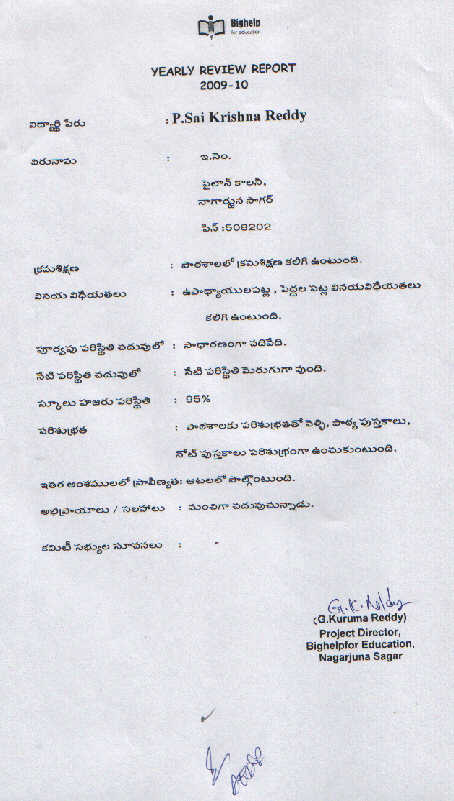 Bighelp
for education
YEARLY REVIEW REPORT
2009-10
విద్యార్థి పేరు : P.Sai Krishna Reddy
చిరునామ : ఇ.నెం.
పైలాన్ కాలని,
నాగార్జున సాగర్
పిన్ :508202
క్రమశిక్షణ : పాఠశాలలో క్రమశిక్షణ కలిగి ఉంటుంది.
వినయ విధేయతలు : ఉపాధ్యాయులపట్ల , పెద్దల పట్ల వినయవిధేయతలు
కలిగి ఉంటుంది.
పూర్వపు పరిస్థితి చదువులో : సాధారణంగా చదివేది.
నేటి పరిస్థితి చదువులో : నేటి పరిస్థితి మెరుగుగా వుంది.
స్కూలు హజరు పరిస్థితి : 95%
పరిశుభ్రత : పాఠశాలకు పరిశుభ్రతతో వెళ్ళి, పాఠ్య పుస్తకాలు,
నోట్ పుస్తకాలు పరిశుభ్రంగా ఉంచుకుంటుంది.
ఇతర అంశములలో ప్రావీణ్యత: ఆటలలో పాల్గొంటుంది.
అభిప్రాయాలు / సలహాలు : మంచిగా చదువుచున్నాడు.
కమిటీ సభ్యుల సూచనలు : -
G.K. Reddy
(G.Kuruma Reddy)
Project Director,
Bighelpfor Education,
Nagarjuna Sagar